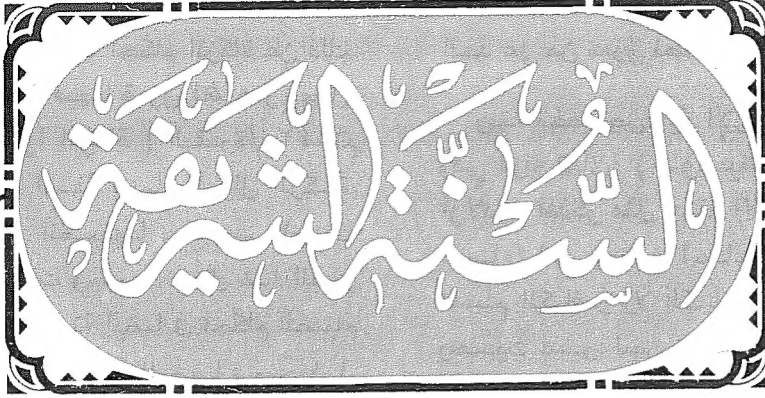 السُّنَّة الشريفة